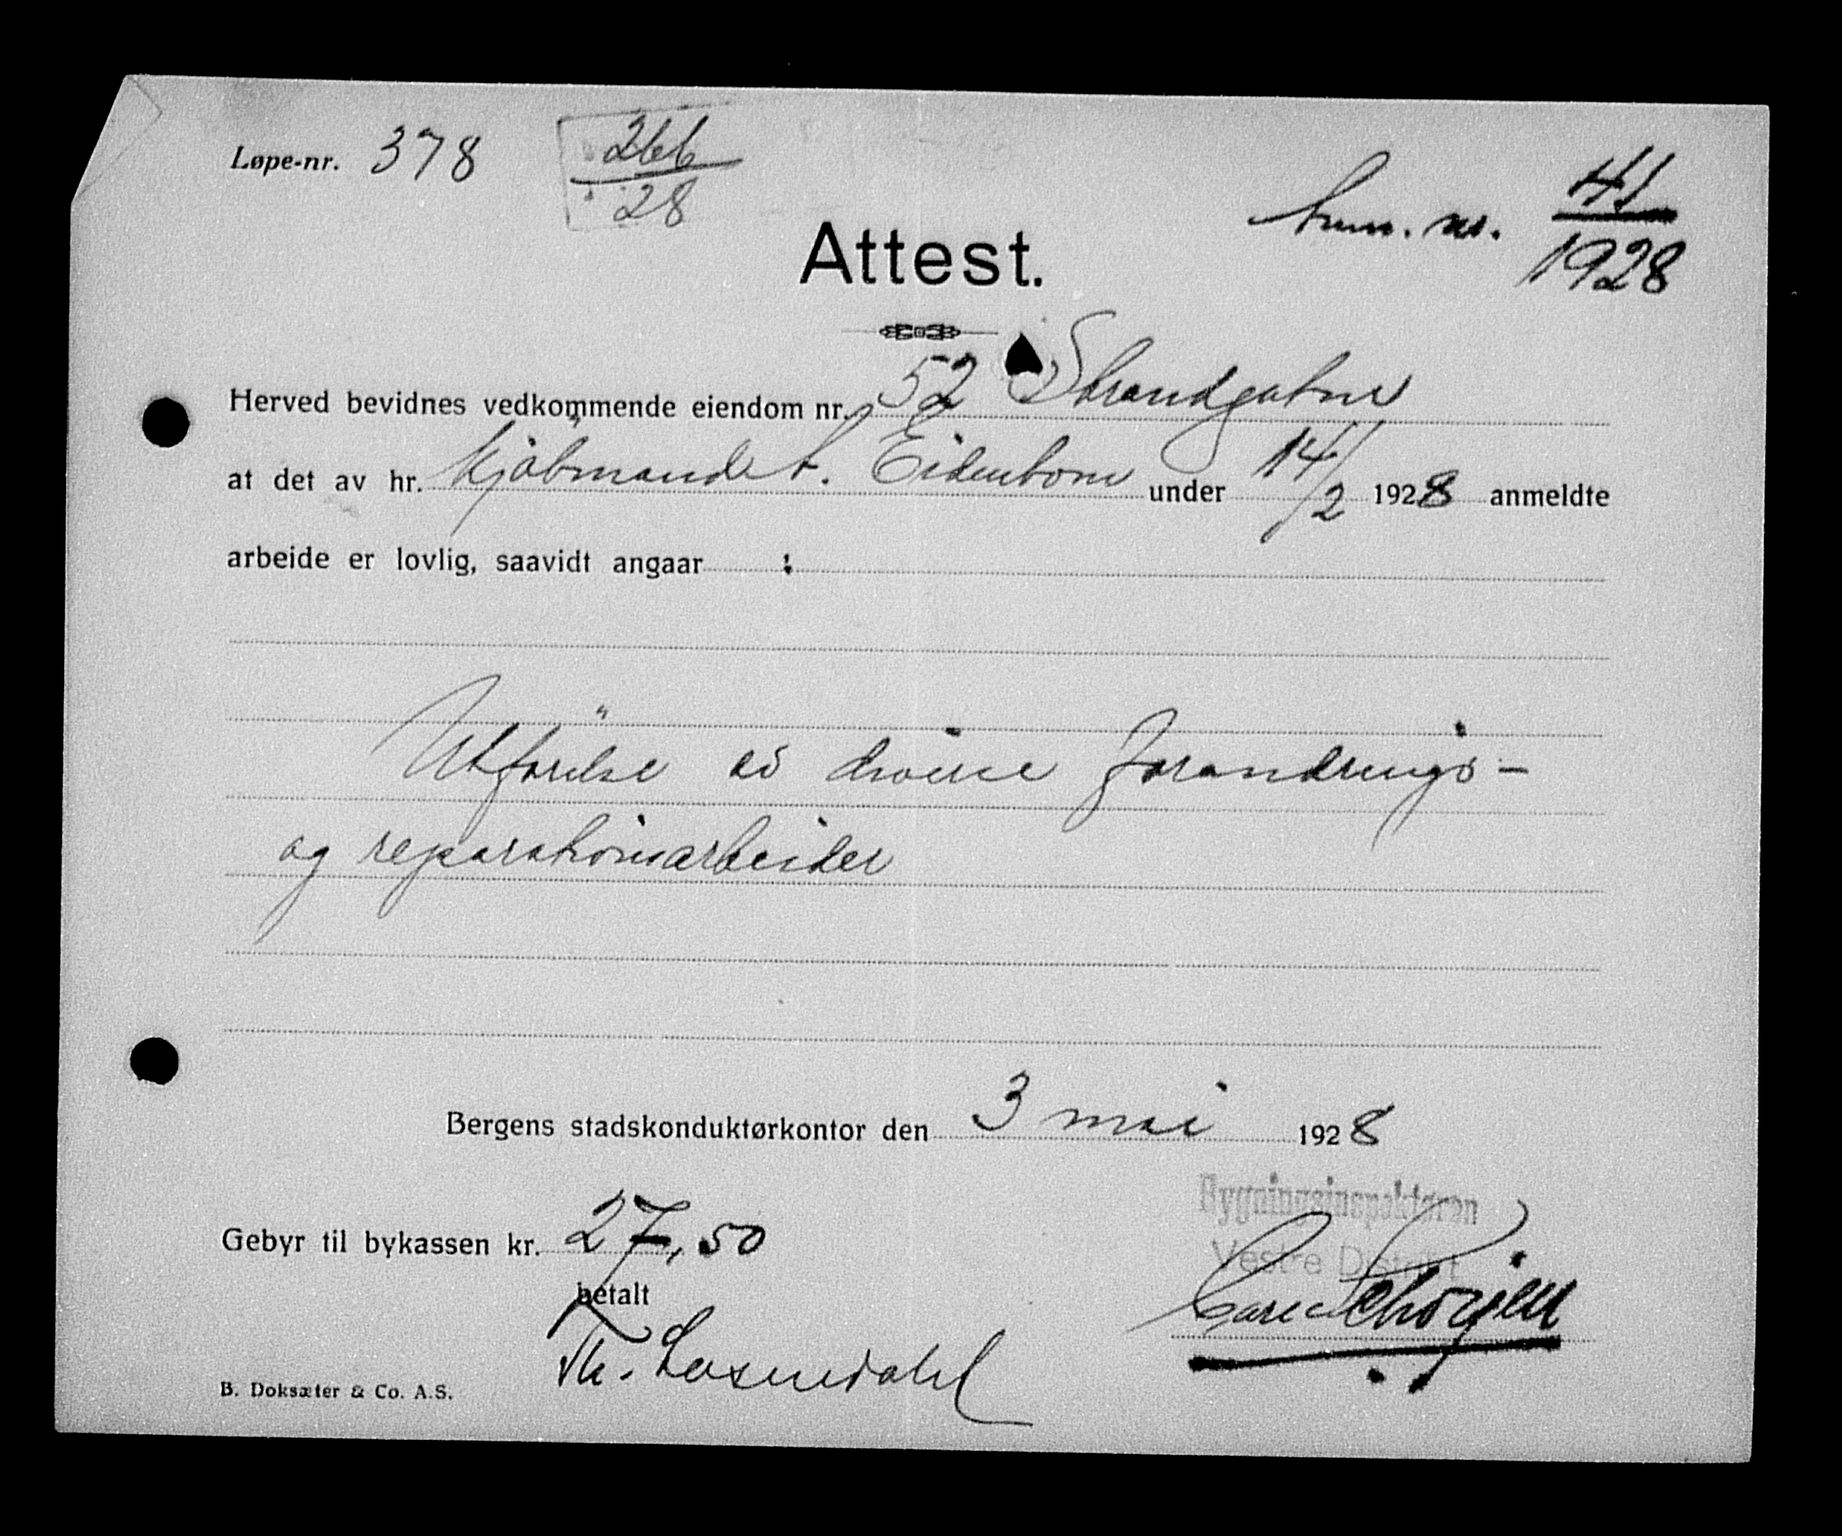 Løpe-nr. 378
266
28
nr. 41
1928
Attest.
Herved bevidnes vedkommende eiendom nr. 52 Strandgaten
at det av hr. Kjøbmand A. Eidenbom under 14/2 1928 anmeldte
arbeide er lovlig, saavidt angaar :
Utførelse av diverse forandrings-
og reparationsarbeider
Bergens stadskonduktørkontor den 3 mai 1928
Bygningsinspektøren
Vestre Distrikt
Gebyr til bykassen kr. 27,50
betalt
Th.
B. Doksæter & Co. A.S.